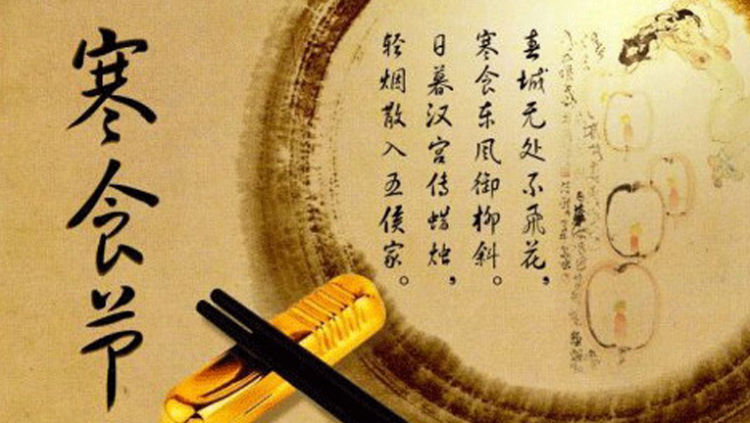 寒食节
春城无处不飞花，
寒食东风御柳斜。
日暮汉宫传蜡烛，
轻烟散入五侯家。